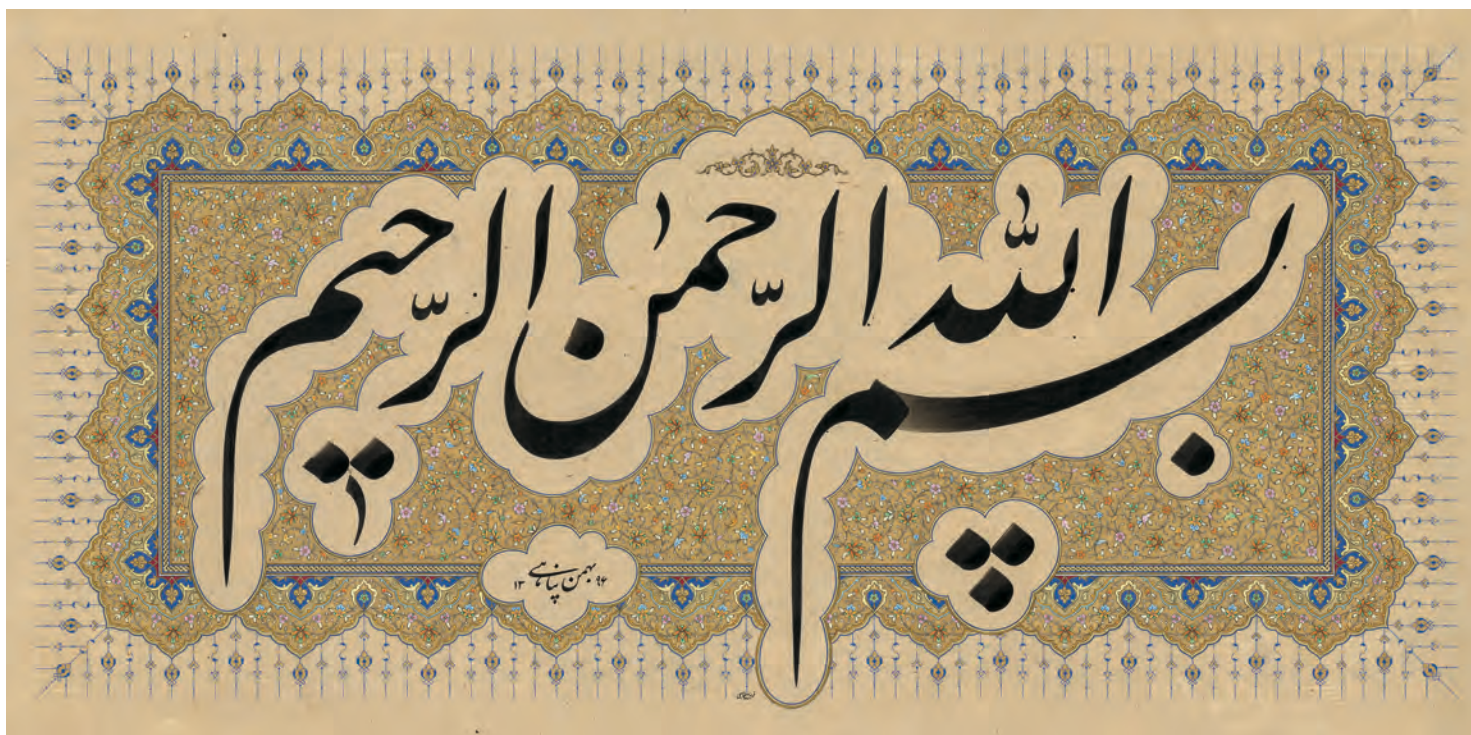 بسم الله الرّحمٰن الرّحیم
بهمن پناهی ۱۳۹۶